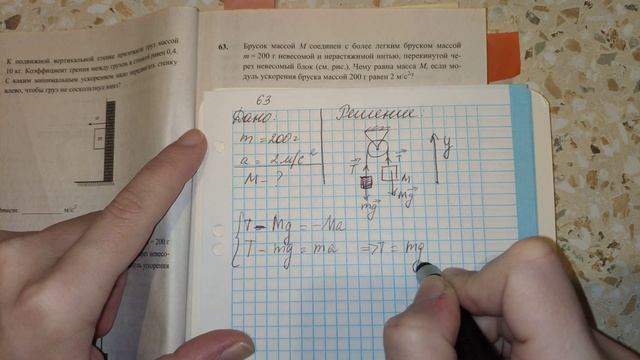 К подвижной вертикальной стенке приложен груз массой
10 кг. Коэффициент трения между грузом и стенкой равен 0,4.
С каким минимальным ускорением надо передвигать стенку
влево, чтобы груз не соскользнул вниз?
a
m
м/с²
63. Брусок массой M соединен с более легким бруском массой
m = 200 г невесомой и нерастяжимой нитью, перекинутой че-
рез невесомый блок (см. рис.). Чему равна масса M, если мо-
дуль ускорения бруска массой 200 г равен 2 м/с²?
63
Дано: Решение:
m = 200 г
a = 2 м/с²
M - ?
T T y
M
mg Mg
T - Mg = -Ma
T - mg = ma => T = mg
= 200 г
ускорения